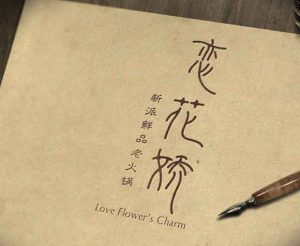 恋花娇
新派鲜品老火锅
Love Flower's Charm